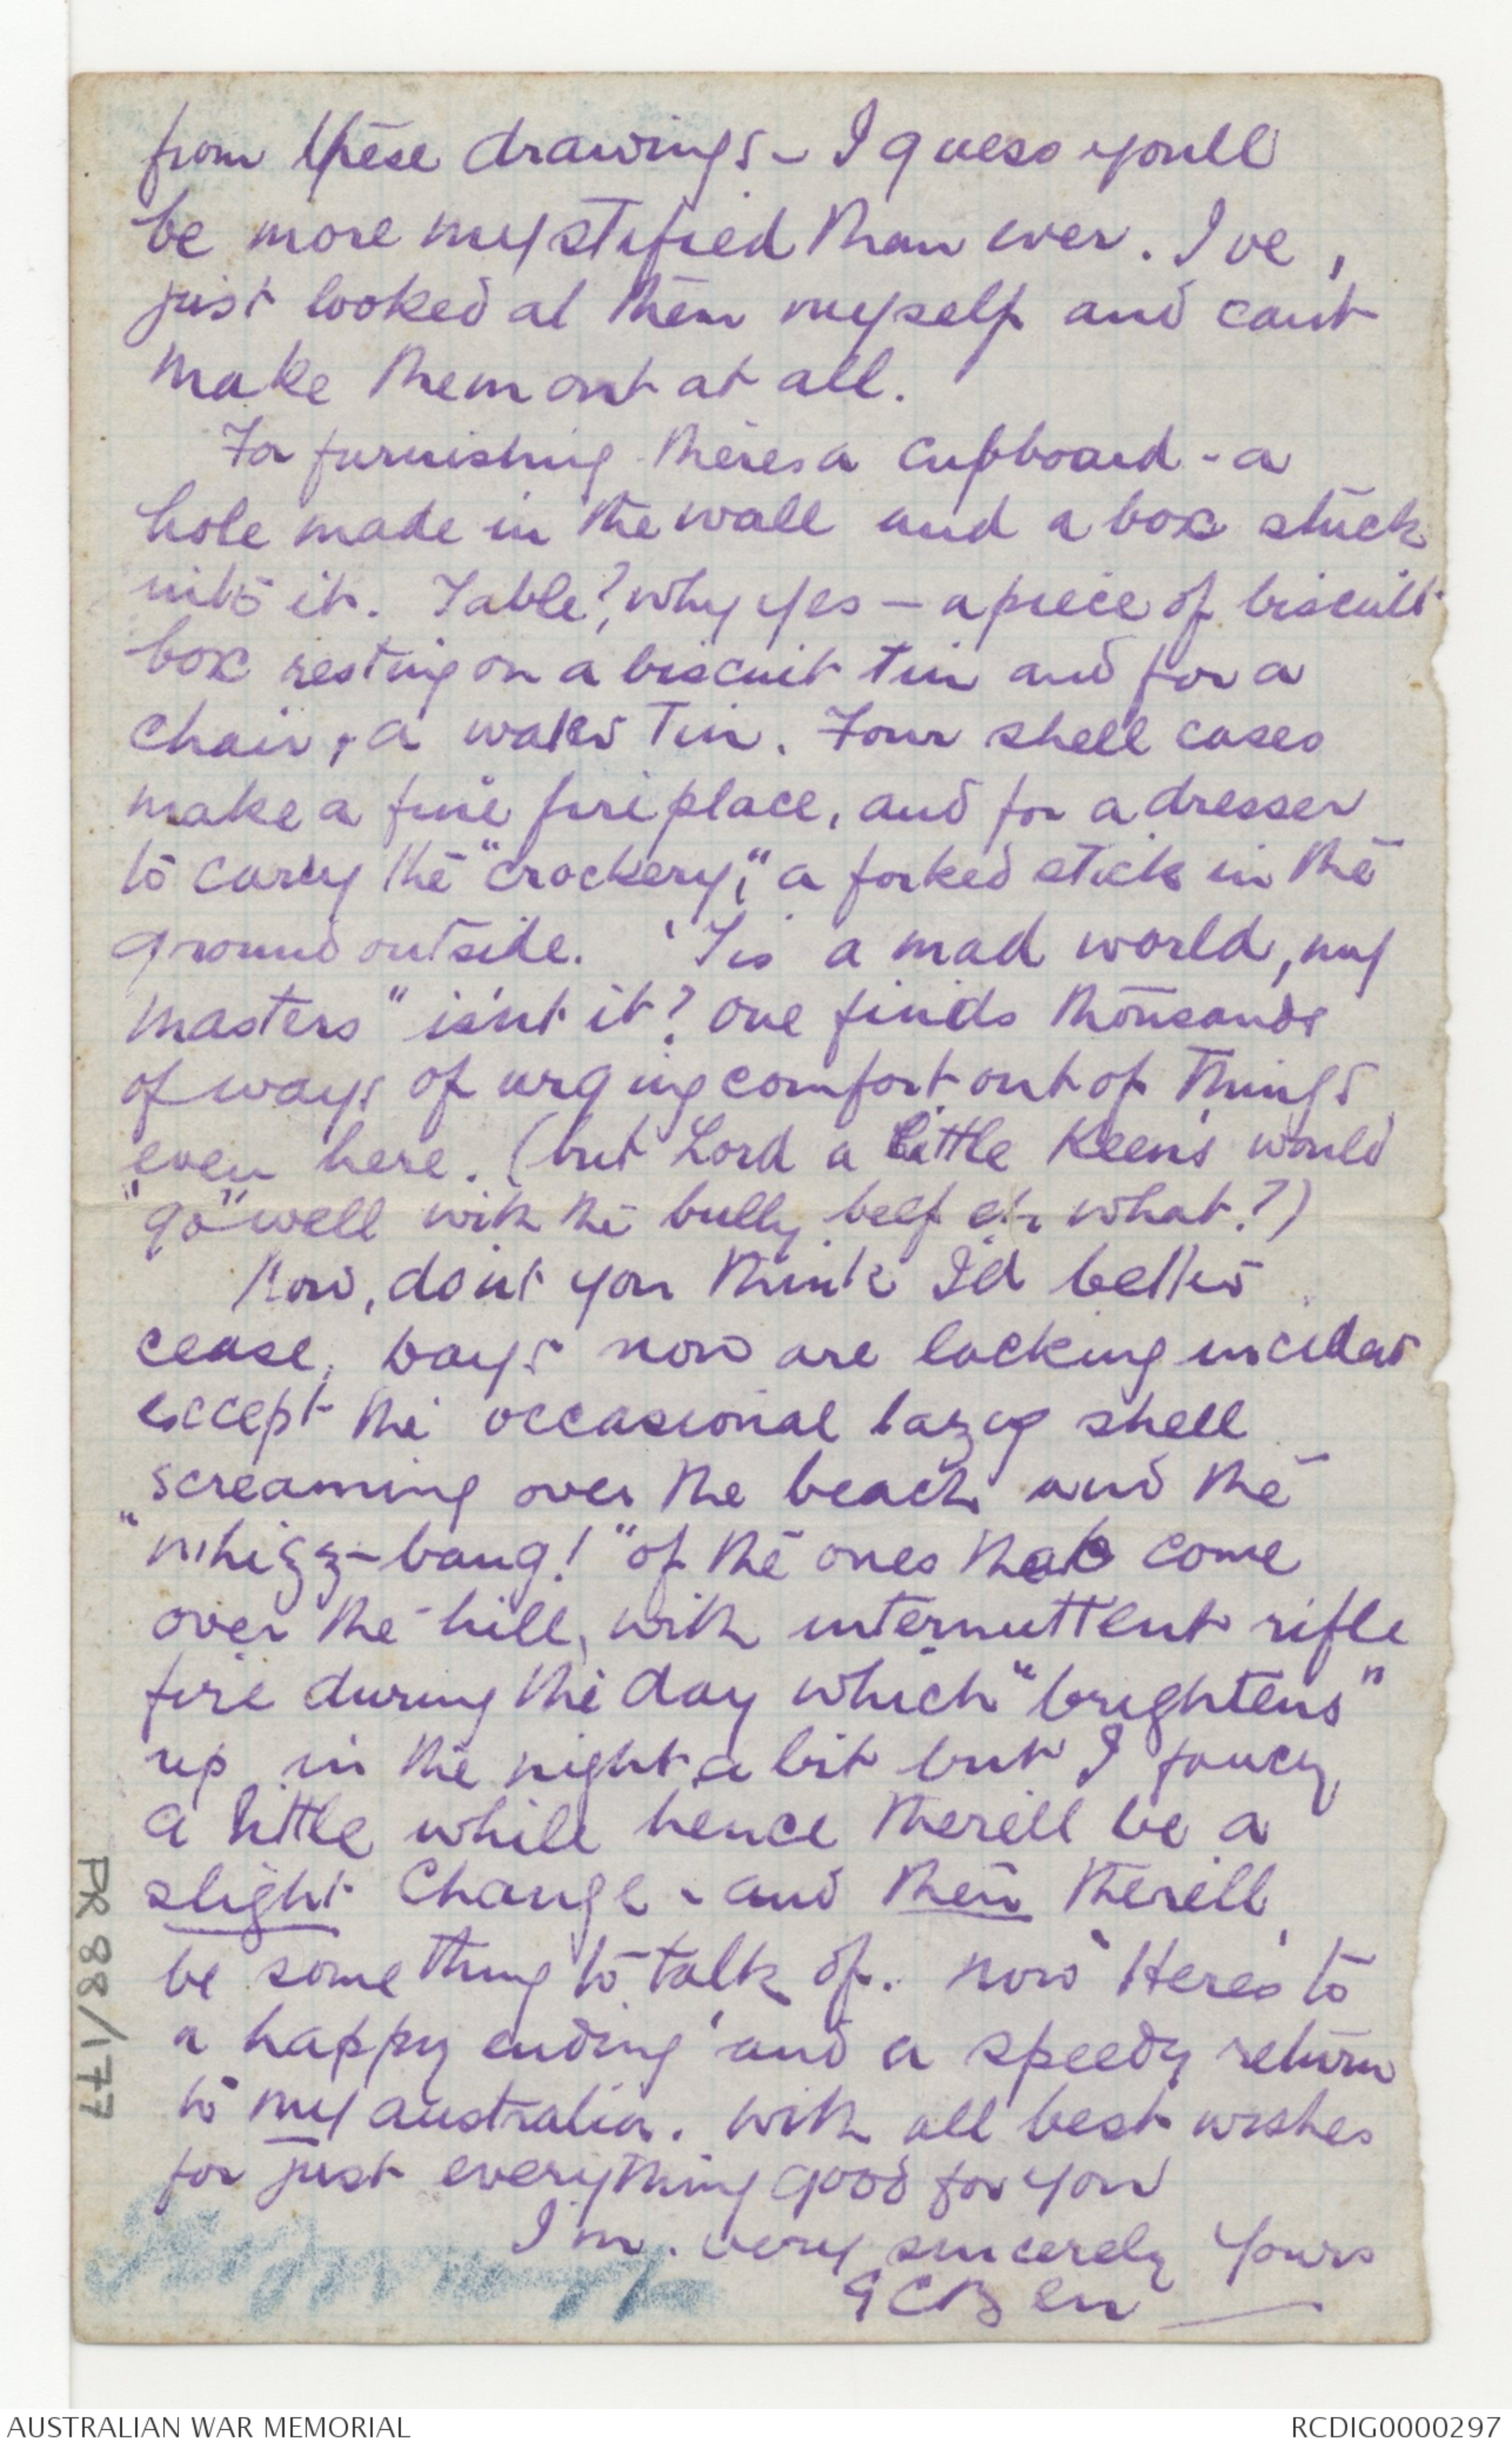 from these drawings - I guess you'll
be more mystified than ever. I've,
just looked at them myself and can't
make them out at all.
For furnishing there's a cupboard - a
hole made in the wall and a box stuck
into it. Table? why yes - a piece of biscuit
box resting on a biscuit tin and for a
chair, a water tin. Four shell cases
make a fine fireplace, and for a dresser
to carry the "crockery," a forked stick in the
ground outside. 'Tis a mad world, my
masters" is'nt it? One finds thousands
of ways of urging comfort out of things
even here. (but Lord a little Keen's would
"go" well with the bully beef eh what?)
Now, don't you think I'd better
cease, days now are lacking incident
except the occasional lazy shell
screaming over the beach and the
"whizz-bang!" of the ones that come
over the hill, with intermittent rifle
fire during the day which "brightens"
up in the night a bit but I fancy
a little while hence there'll be a
slight change - and then there'll
be something to talk of. Now "Here's to
a happy ending' and a speedy return
to my Australia. With all best wishes
for just everything good for you
I'm. very sincerely Yours
PR 88/177
AUSTRALIAN WAR MEMORIAL
RCDIG0000297